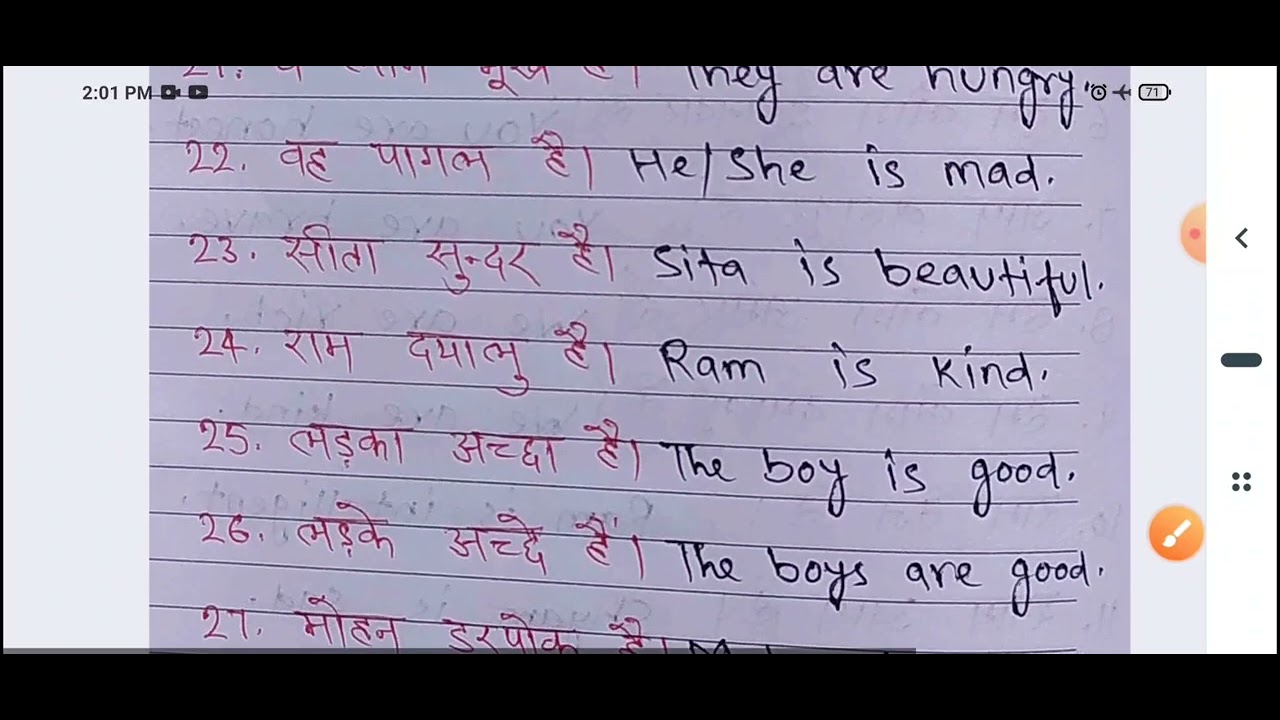 2:01 PM 71
21. वे लोग भूखे हैं। They are hungry.
22. वह पागल है। He/She is mad.
23. सीता सुन्दर है। Sita is beautiful.
24. राम दयालु है। Ram is kind.
25. लड़का अच्छा है। The boy is good.
26. लड़के अच्छे हैं। The boys are good.
27. मोहन डरपोक है।